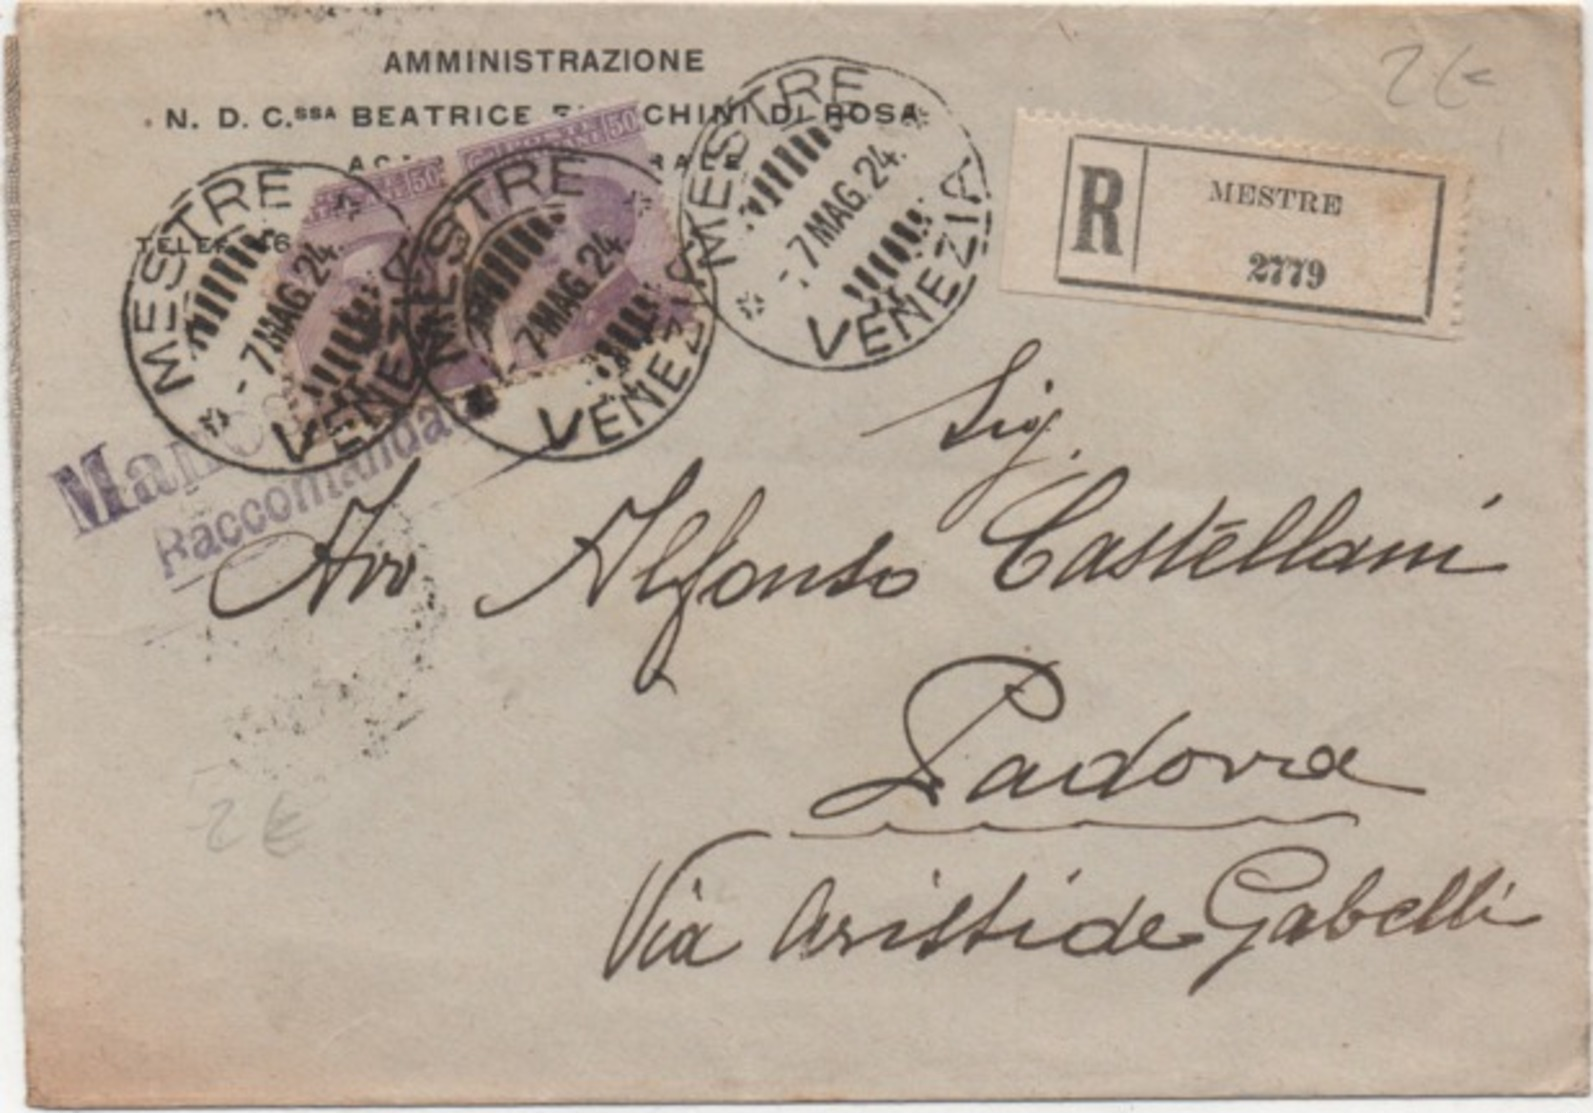 AMMINISTRAZIONE
N. D. C.SSA BEATRICE CHINI DI ROSA
50
50
MESTRE
- 7 MAG. 24.
VENEZIA
MESTRE
- 7 MAG. 24.
VENEZIA
MESTRE
- 7 MAG. 24.
VENEZIA
R
MESTRE
2779
2 €
Raccomandata
Sig.
Avv Alfonso Castellani
Padova
Via Aristide Gabelli
2 €